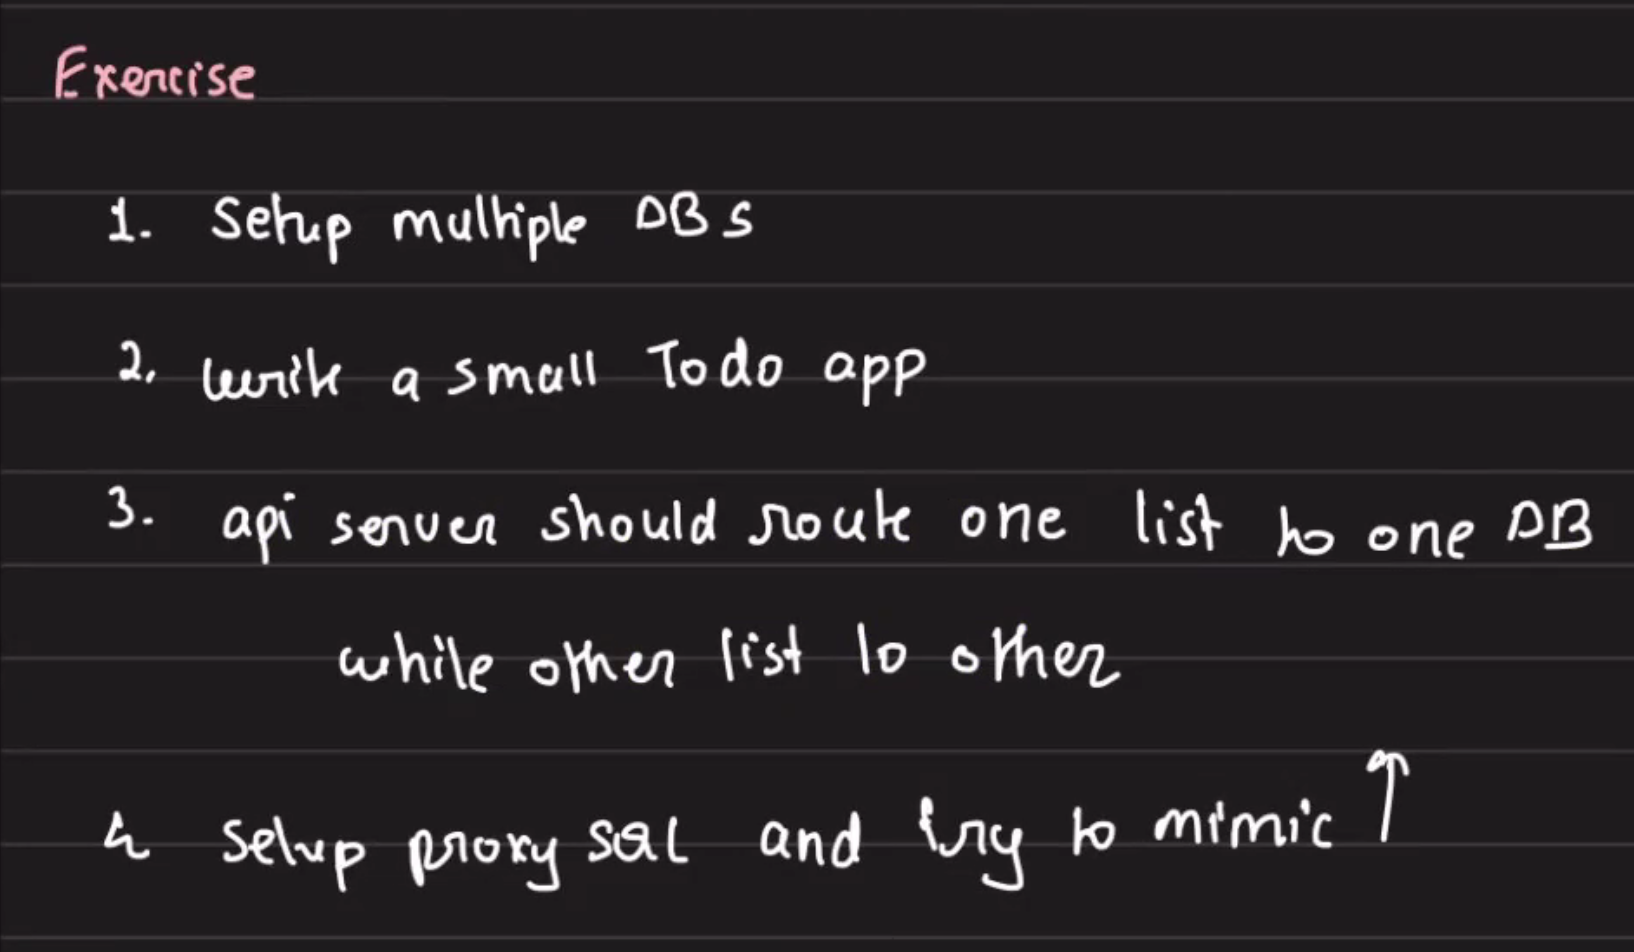 Exercise
1. Setup multiple DBs
2. write a small Todo app
3. api server should route one list to one DB
while other list to other
4 setup proxy SQL and try to mimic ↑